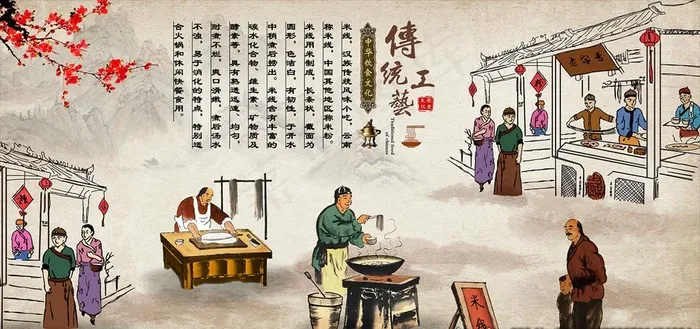 老字号
傳統工藝
Traditional food
of Chinese
中华饮食文化
米线，汉族传统风味小吃，云南
称米线，中国其他地区称米粉。
米线用米制成，长条状，截面为
圆形，色洁白，有韧性，于开水
中稍煮后捞出。米线含有丰富的
碳水化合物、维生素、矿物质及
酵素等，具有熟透迅速、均匀，
耐煮不烂，爽口滑嫩，煮后汤水
不浊，易于消化的特点，特别适
合火锅和休闲快餐食用。
米线